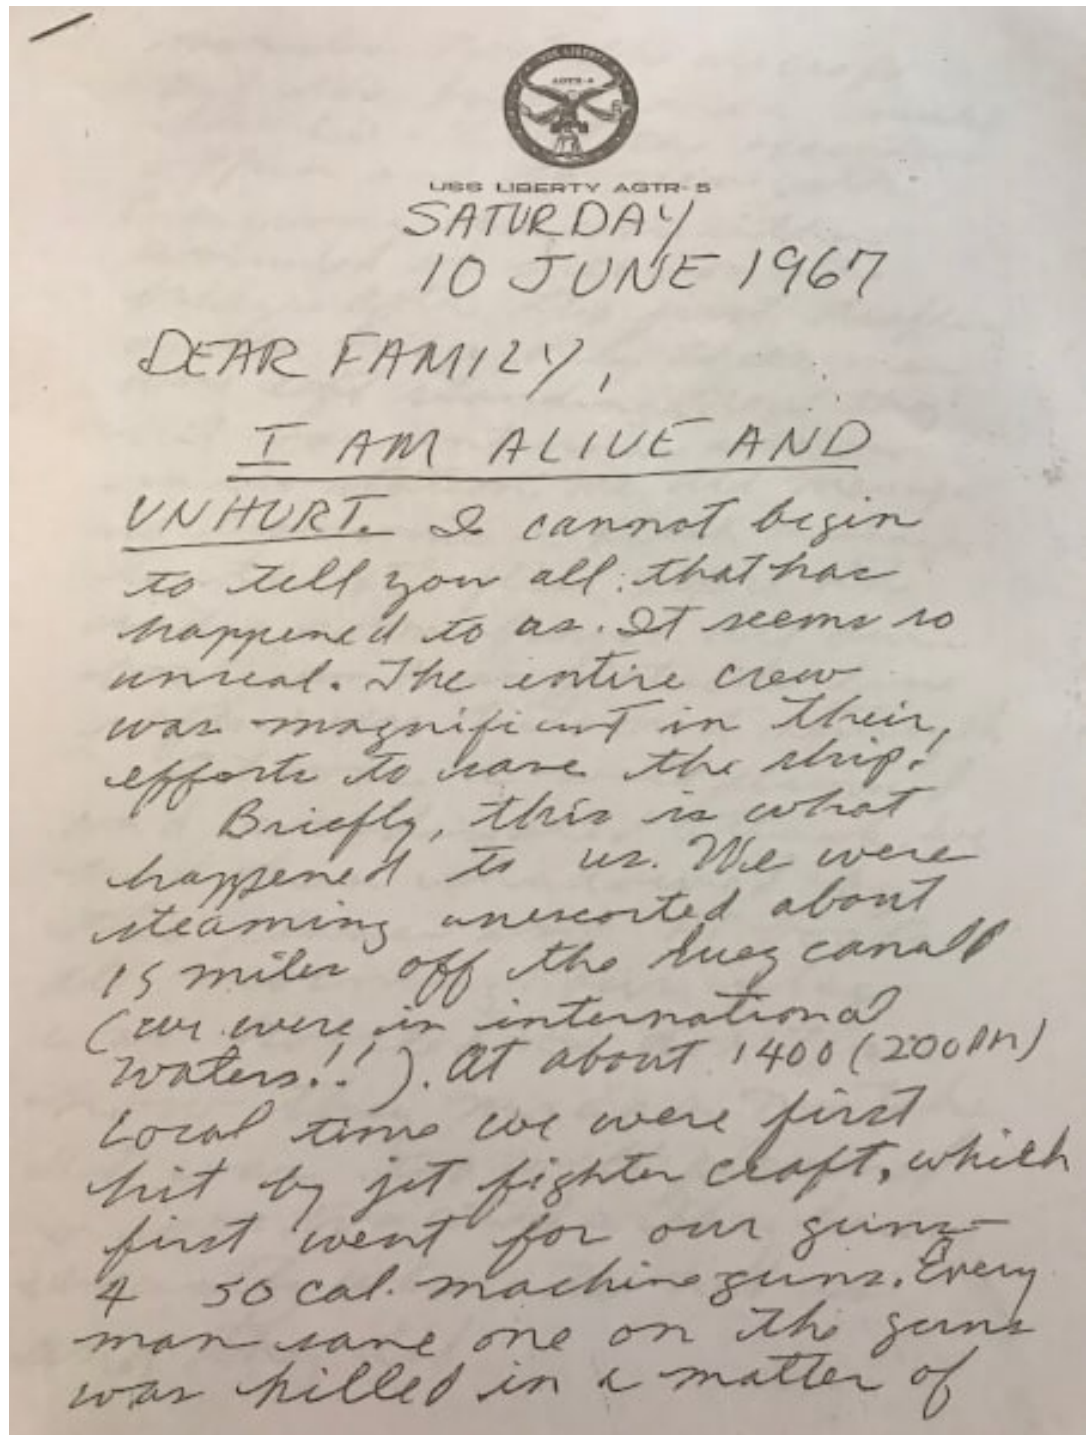 USS LIBERTY
AGTR-5
USS LIBERTY AGTR-5
SATURDAY
10 JUNE 1967
DEAR FAMILY,
I AM ALIVE AND
UNHURT. I cannot begin
to tell you all that has
happened to us. It seems so
unreal. The entire crew
was magnificant in their
efforts to save the ship!
Briefly, this is what
happened to us. We were
steaming unescorted about
15 miles off the Suez canall
(we were in international
waters!!). At about 1400 (200PM)
Local time we were first
hit by jet fighter craft, which
first went for our guns-
4 50 cal. machine guns. Every
man save one on the guns
was killed in a matter of